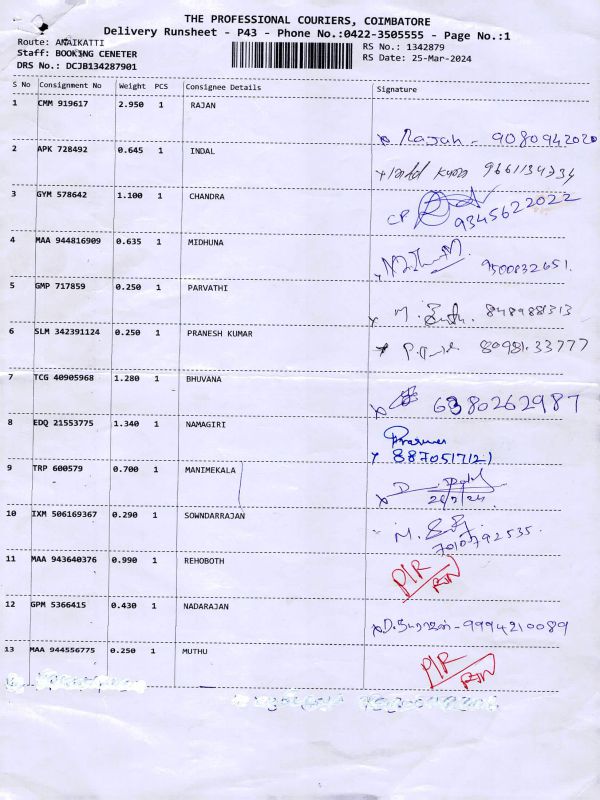 THE PROFESSIONAL COURIERS, COIMBATORE
Delivery Runsheet - P43 - Phone No.:0422-3505555 - Page No.:1
Route: ANAIKATTI
RS No.: 1342879
Staff: BOOKING CENETER
RS Date: 25-Mar-2024
DRS No.: DCJB134287901
S No Consignment No Weight PCS Consignee Details Signature
1 CMM 919617 2.950 1 RAJAN
Rajah - 9080942020
2 APK 728492 0.645 1 INDAL
9661134334
3 GYM 578642 1.100 1 CHANDRA
CP 9345622022
4 MAA 944816909 0.635 1 MIDHUNA
9500832651.
5 GMP 717859 0.250 1 PARVATHI
M.
6 SLM 342391124 0.250 1 PRANESH KUMAR
80981.33777
7 TCG 40905968 1.280 1 BHUVANA
6380262987
8 EDQ 21553775 1.340 1 NAMAGIRI
9 TRP 600579 0.700 1 MANIMEKALA
10 IXM 506169367 0.290 1 SOWNDARRAJAN
M.
11 MAA 943640376 0.990 1 REHOBOTH
P/R
RTN
12 GPM 5366415 0.430 1 NADARAJAN
D.நடராஜன் - 9994210089
13 MAA 944556775 0.250 1 MUTHU
P/R
RTN